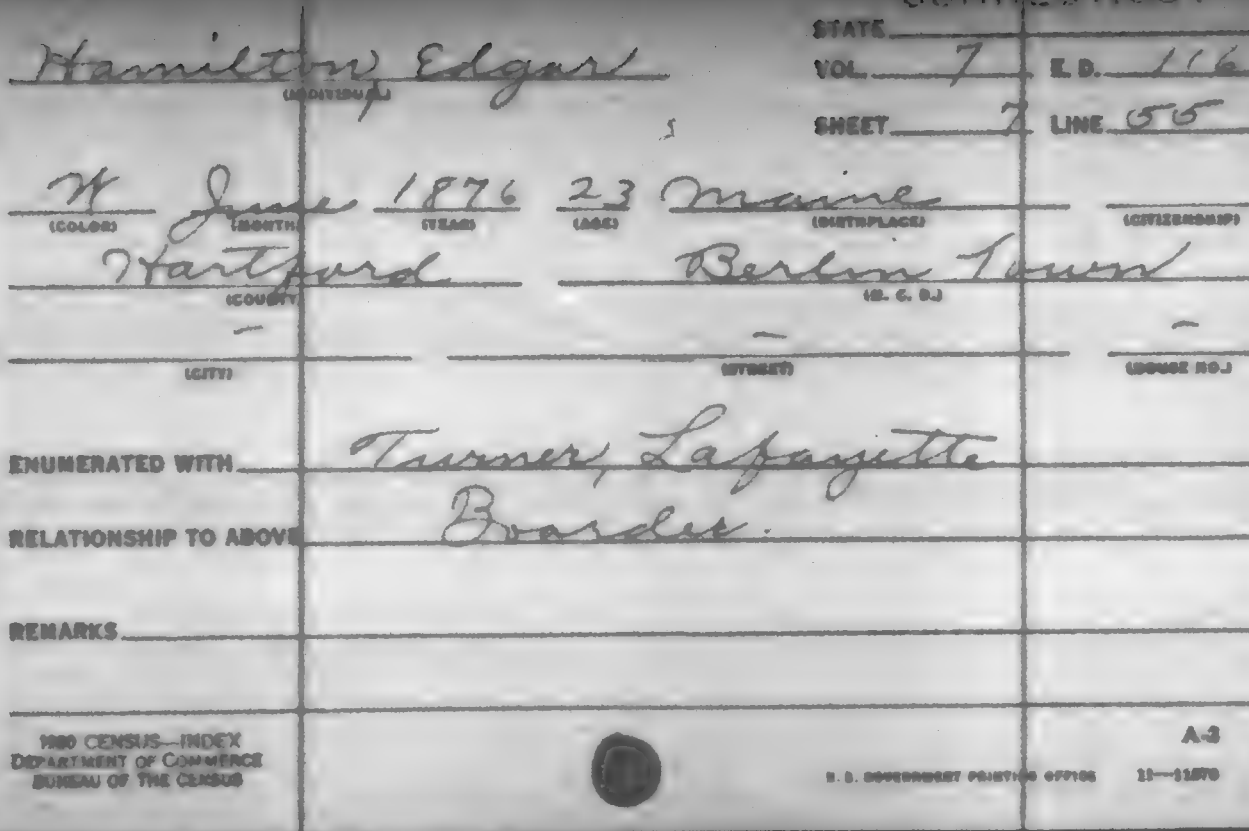 STATE
Hamilton, Edgar VOL. 7 E. D. 116
(INDIVIDUAL)
SHEET 7 LINE 55
W June 1876 23 Maine
(COLOR) (MONTH) (YEAR) (AGE) (BIRTHPLACE) (CITIZENSHIP)
Hartford Berlin Town
(COUNTY) (M. C. D.)
– – –
(CITY) (STREET) (HOUSE NO.)
ENUMERATED WITH Turner, Lafayette
RELATIONSHIP TO ABOVE Boarder.
REMARKS
1900 CENSUS—INDEX A-3
DEPARTMENT OF COMMERCE
BUREAU OF THE CENSUS U. S. GOVERNMENT PRINTING OFFICE